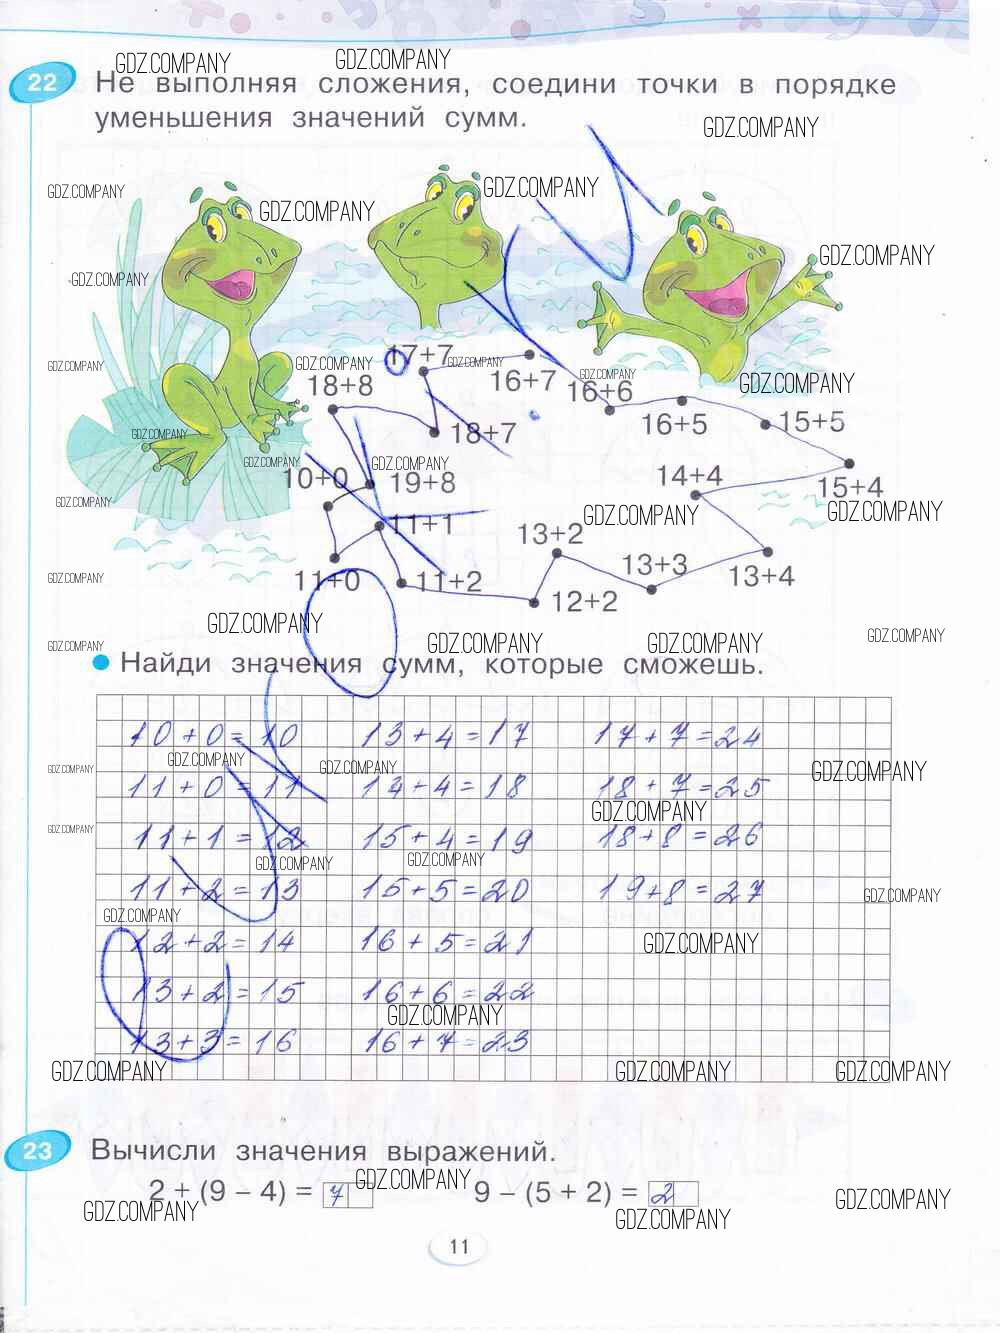 GDZ.COMPANY GDZ.COMPANY
22 Не выполняя сложения, соедини точки в порядке
уменьшения значений сумм.
GDZ.COMPANY
GDZ.COMPANY GDZ.COMPANY
GDZ.COMPANY
GDZ.COMPANY
GDZ.COMPANY
17+7
GDZ.COMPANY GDZ.COMPANY GDZ.COMPANY
18+8 16+7 GDZ.COMPANY 16+6 GDZ.COMPANY
16+5 15+5
GDZ.COMPANY 18+7
GDZ.COMPANY GDZ.COMPANY
10+0 19+8 14+4 15+4
GDZ.COMPANY GDZ.COMPANY GDZ.COMPANY
11+1 13+2
13+3 13+4
GDZ.COMPANY 11+0 11+2 12+2
GDZ.COMPANY
GDZ.COMPANY GDZ.COMPANY GDZ.COMPANY GDZ.COMPANY
Найди значения сумм, которые сможешь.
10+0=10 13+4=17 17+7=24
GDZ.COMPANY GDZ.COMPANY GDZ.COMPANY GDZ.COMPANY
11+0=11 14+4=18 18+7=25
GDZ.COMPANY
GDZ.COMPANY
11+1=12 15+4=19 18+8=26
GDZ.COMPANY GDZ.COMPANY
11+2=13 15+5=20 19+8=27
GDZ.COMPANY
GDZ.COMPANY
12+2=14 16+5=21
GDZ.COMPANY
13+2=15 16+6=22
GDZ.COMPANY
13+3=16 16+7=23
GDZ.COMPANY GDZ.COMPANY GDZ.COMPANY
23 Вычисли значения выражений.
GDZ.COMPANY
2 + (9 – 4) = 7 9 – (5 + 2) = 2
GDZ.COMPANY GDZ.COMPANY GDZ.COMPANY
11